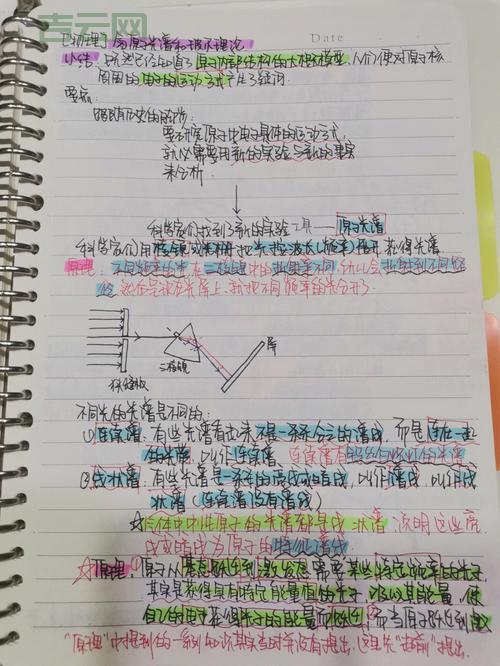 吉云网
Date
[物理] 氢原子光谱和玻尔理论
小结: 既然已经知道了原子内部结构的大概模型,人们便对原子核
周围的电子的运动方式产生了疑问.
要研究原子中电子具体的运动方式,
就必需要用新的实验与新的事实
来分析.
科学家们找到了新的实验工具——原子光谱
科学家们用棱镜或光栅把光按波长(频率)展开,获得光谱
原理: 不同频率的光在三棱镜中的折射率不同,所以会折射到不同路
径,然后呈现在光屏上,就把不同频率的光分开了.
屏
三棱镜
狭缝板
不同光的光谱是不同的:
①连续谱: 有些光谱看起来不是一条条分立的谱线,而是连在一起
的光带,叫作连续谱.
②线状谱: 有些光谱是一条条的亮线或暗线,叫作谱线,叫作线
状谱 (连续谱没有谱线)
☆气体中中性原子的光谱都是线状谱,说明这些亮
线或暗线为原子的特征谱线.
☆原理: 原子从基态跃迁到激发态需要某些特定频率的光子,
其实是获得具有特定能量值的光子,吸收其能量,使
自己的电子获得光子的能量而跃迁,而当原子跃迁到激
"原理"中提到的一系列知识其实当时并没有提出,这里先"超前"提出.